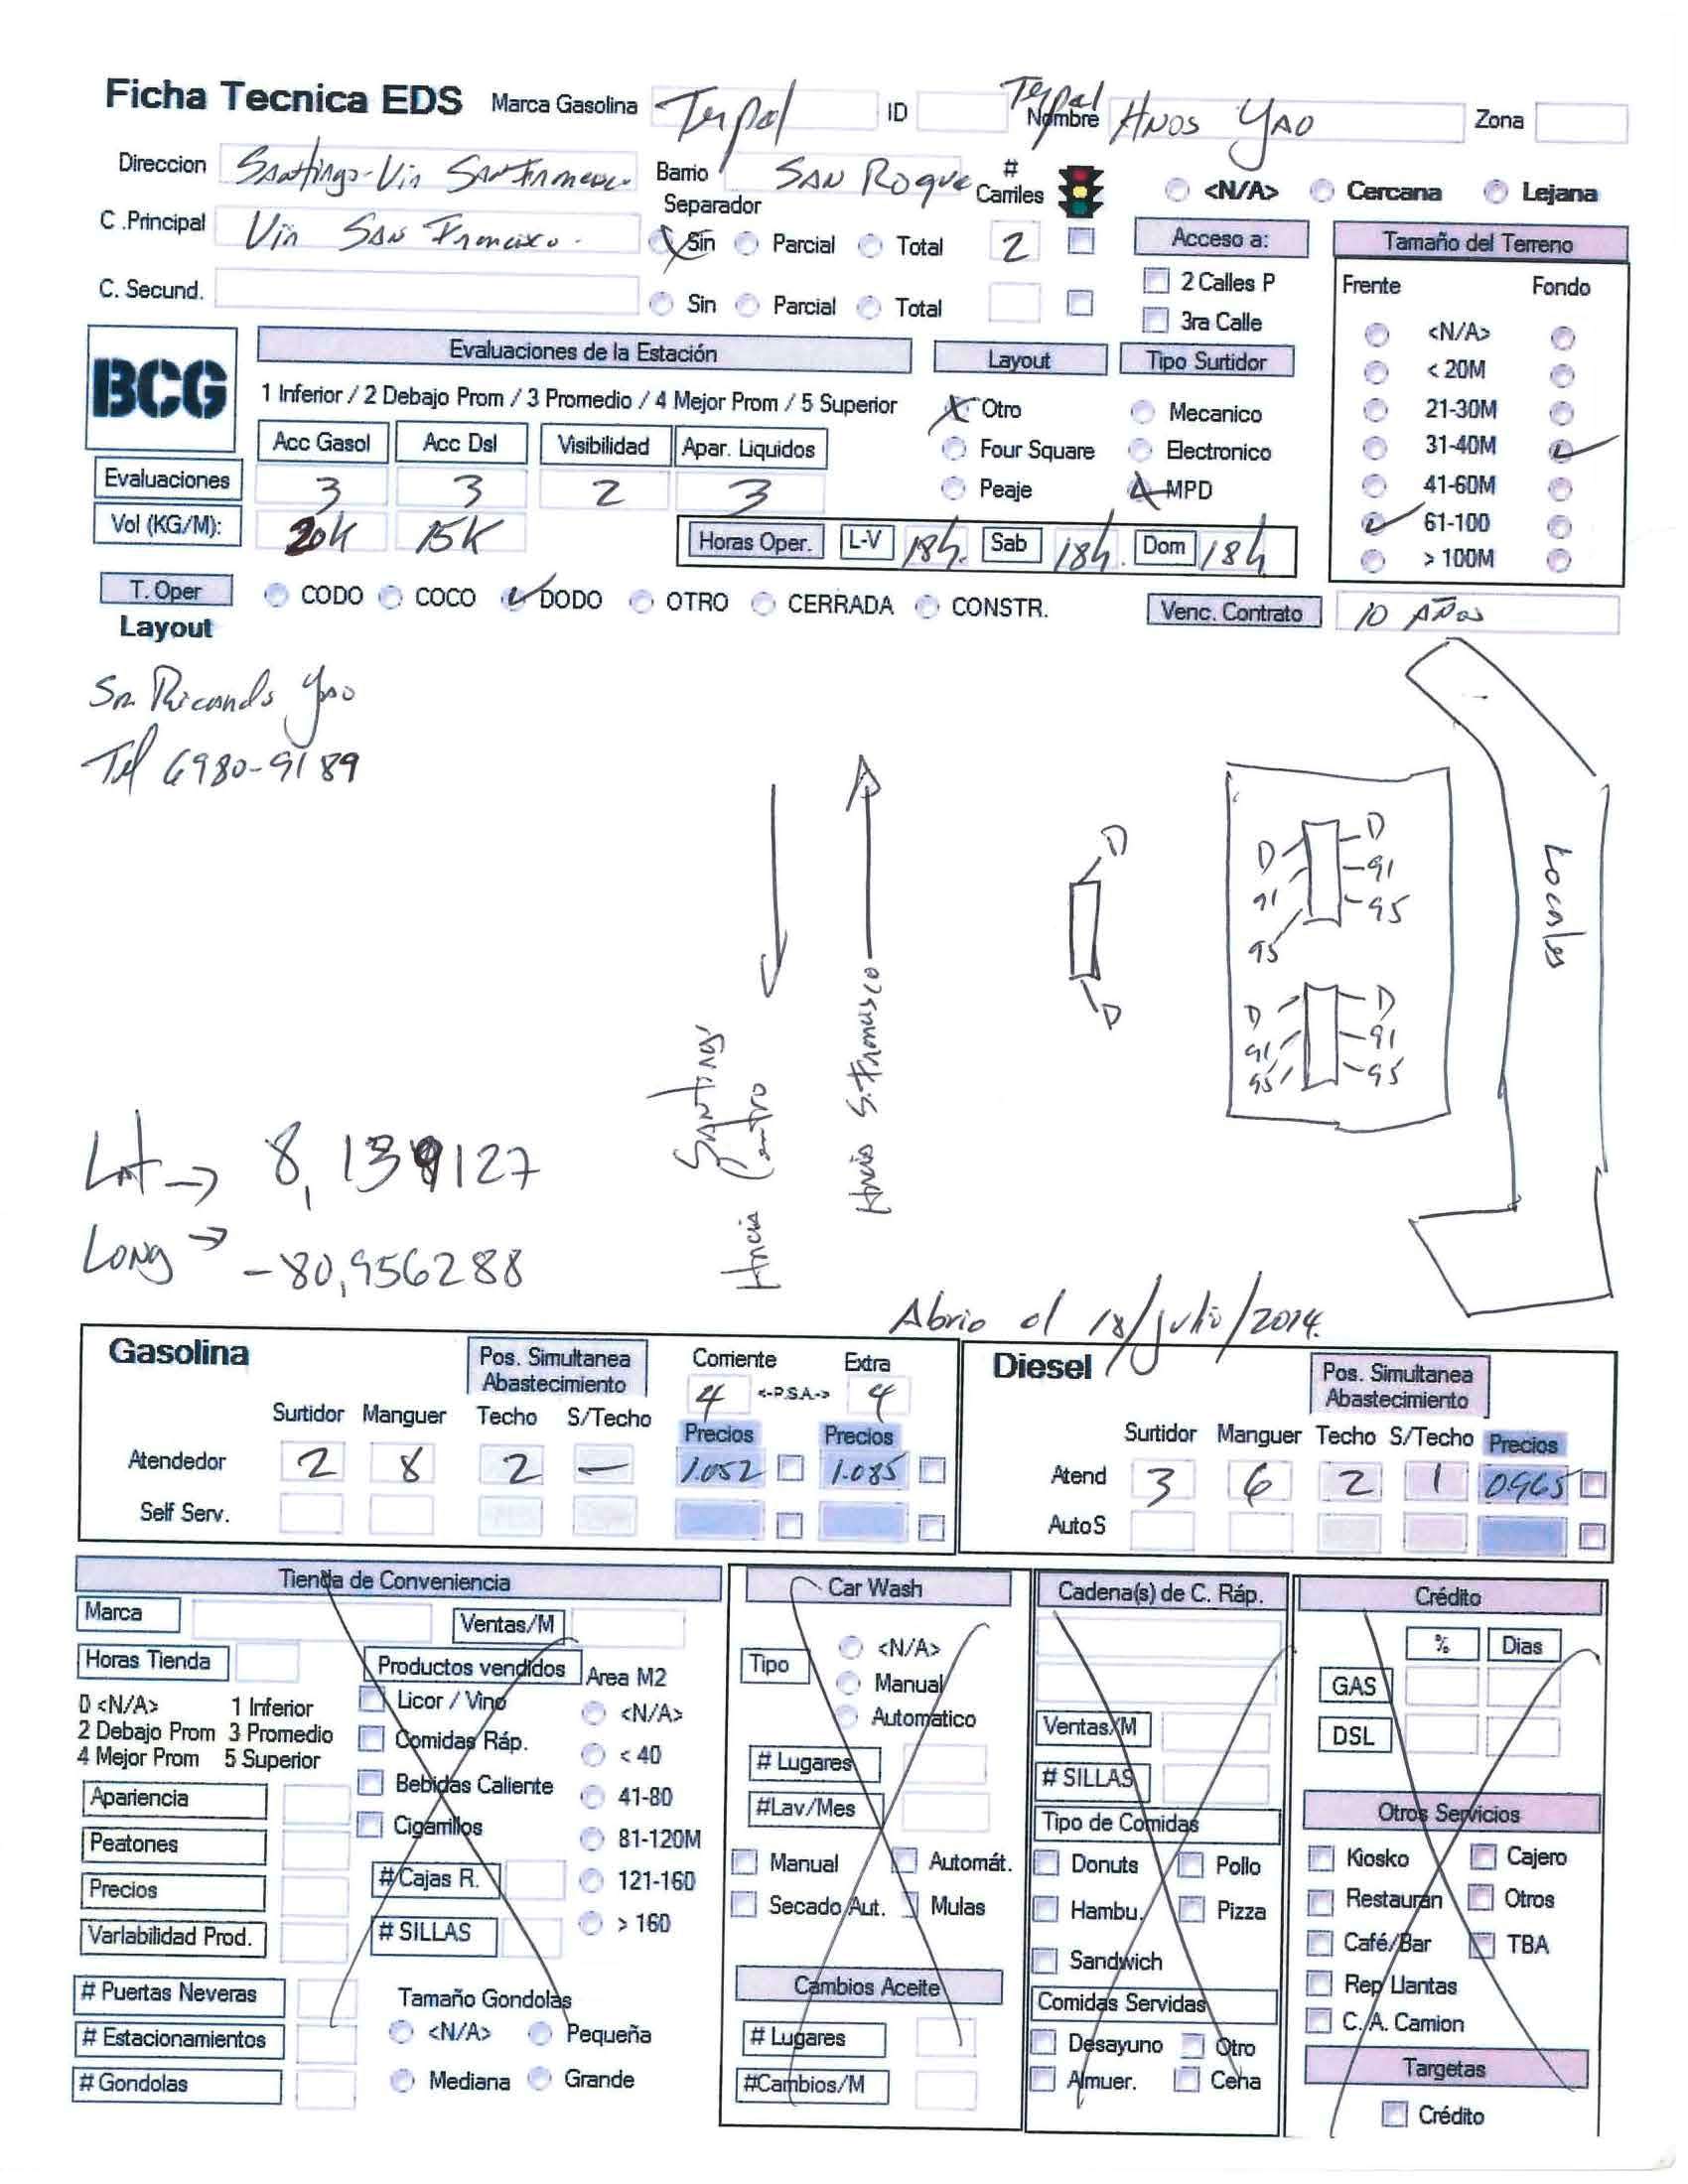 Ficha Tecnica EDS Marca Gasolina Terpel ID Terpel Nombre HNOS YAO Zona
Direccion Santiago-Vía San Francisco Barrio SAN Roque # Carriles <N/A> Cercana Lejana
Separador
C .Principal Vía SAN Francisco. Sin Parcial Total 2 Acceso a: Tamaño del Terreno
2 Calles P Frente Fondo
C. Secund. Sin Parcial Total 3ra Calle
<N/A>
BCG Evaluaciones de la Estación Layout Tipo Surtidor
< 20M
1 Inferior / 2 Debajo Prom / 3 Promedio / 4 Mejor Prom / 5 Superior Otro Mecanico 21-30M
Acc Gasol Acc Dsl Visibilidad Apar. Liquidos Four Square Electronico 31-40M
Evaluaciones 3 3 2 3 Peaje MPD 41-60M
Vol (KG/M): 20K 15K Horas Oper. L-V 18h. Sab 18h. Dom 18h 61-100
> 100M
T. Oper CODO COCO DODO OTRO CERRADA CONSTR. Venc. Contrato 10 AÑos
Layout
Sr. Ricardo Yao
Tel 6980-9189
D D 91 91 95 95
D D
D D 91 91 95 95
Locales
Hacia Santiago Centro
Hacia S. Francisco
Lat → 8,139127
Long → -80,956288
Abrio el 18/julio/2014.
Gasolina Pos. Simultanea Abastecimiento Corriente Extra
4 <-P.S.A-> 4
Surtidor Manguer Techo S/Techo Precios Precios
Atendedor 2 8 2 — 1.052 1.085
Self Serv.
Diesel Pos. Simultanea Abastecimiento
Surtidor Manguer Techo S/Techo Precios
Atend 3 6 2 1 0.965
AutoS
Tienda de Conveniencia
Marca Ventas/M
Horas Tienda Productos vendidos Area M2
0 <N/A> 1 Inferior Licor / Vino <N/A>
2 Debajo Prom 3 Promedio Comidas Ráp. < 40
4 Mejor Prom 5 Superior
Apariencia Bebidas Caliente 41-80
Peatones Cigarrillos 81-120M
Precios # Cajas R. 121-160
Variabilidad Prod. # SILLAS > 160
# Puertas Neveras Tamaño Gondolas
# Estacionamientos <N/A> Pequeña
# Gondolas Mediana Grande
Car Wash
Tipo <N/A>
Manual
Automatico
# Lugares
#Lav/Mes
Manual Automát.
Secado Aut. Mulas
Cambios Aceite
# Lugares
#Cambios/M
Cadena(s) de C. Ráp.
Ventas/M
# SILLAS
Tipo de Comidas
Donuts Pollo
Hambu. Pizza
Sandwich
Comidas Servidas
Desayuno Otro
Almuer. Cena
Crédito
% Dias
GAS
DSL
Otros Servicios
Kiosko Cajero
Restauran Otros
Café/Bar TBA
Rep Llantas
C. A. Camion
Targetas
Crédito